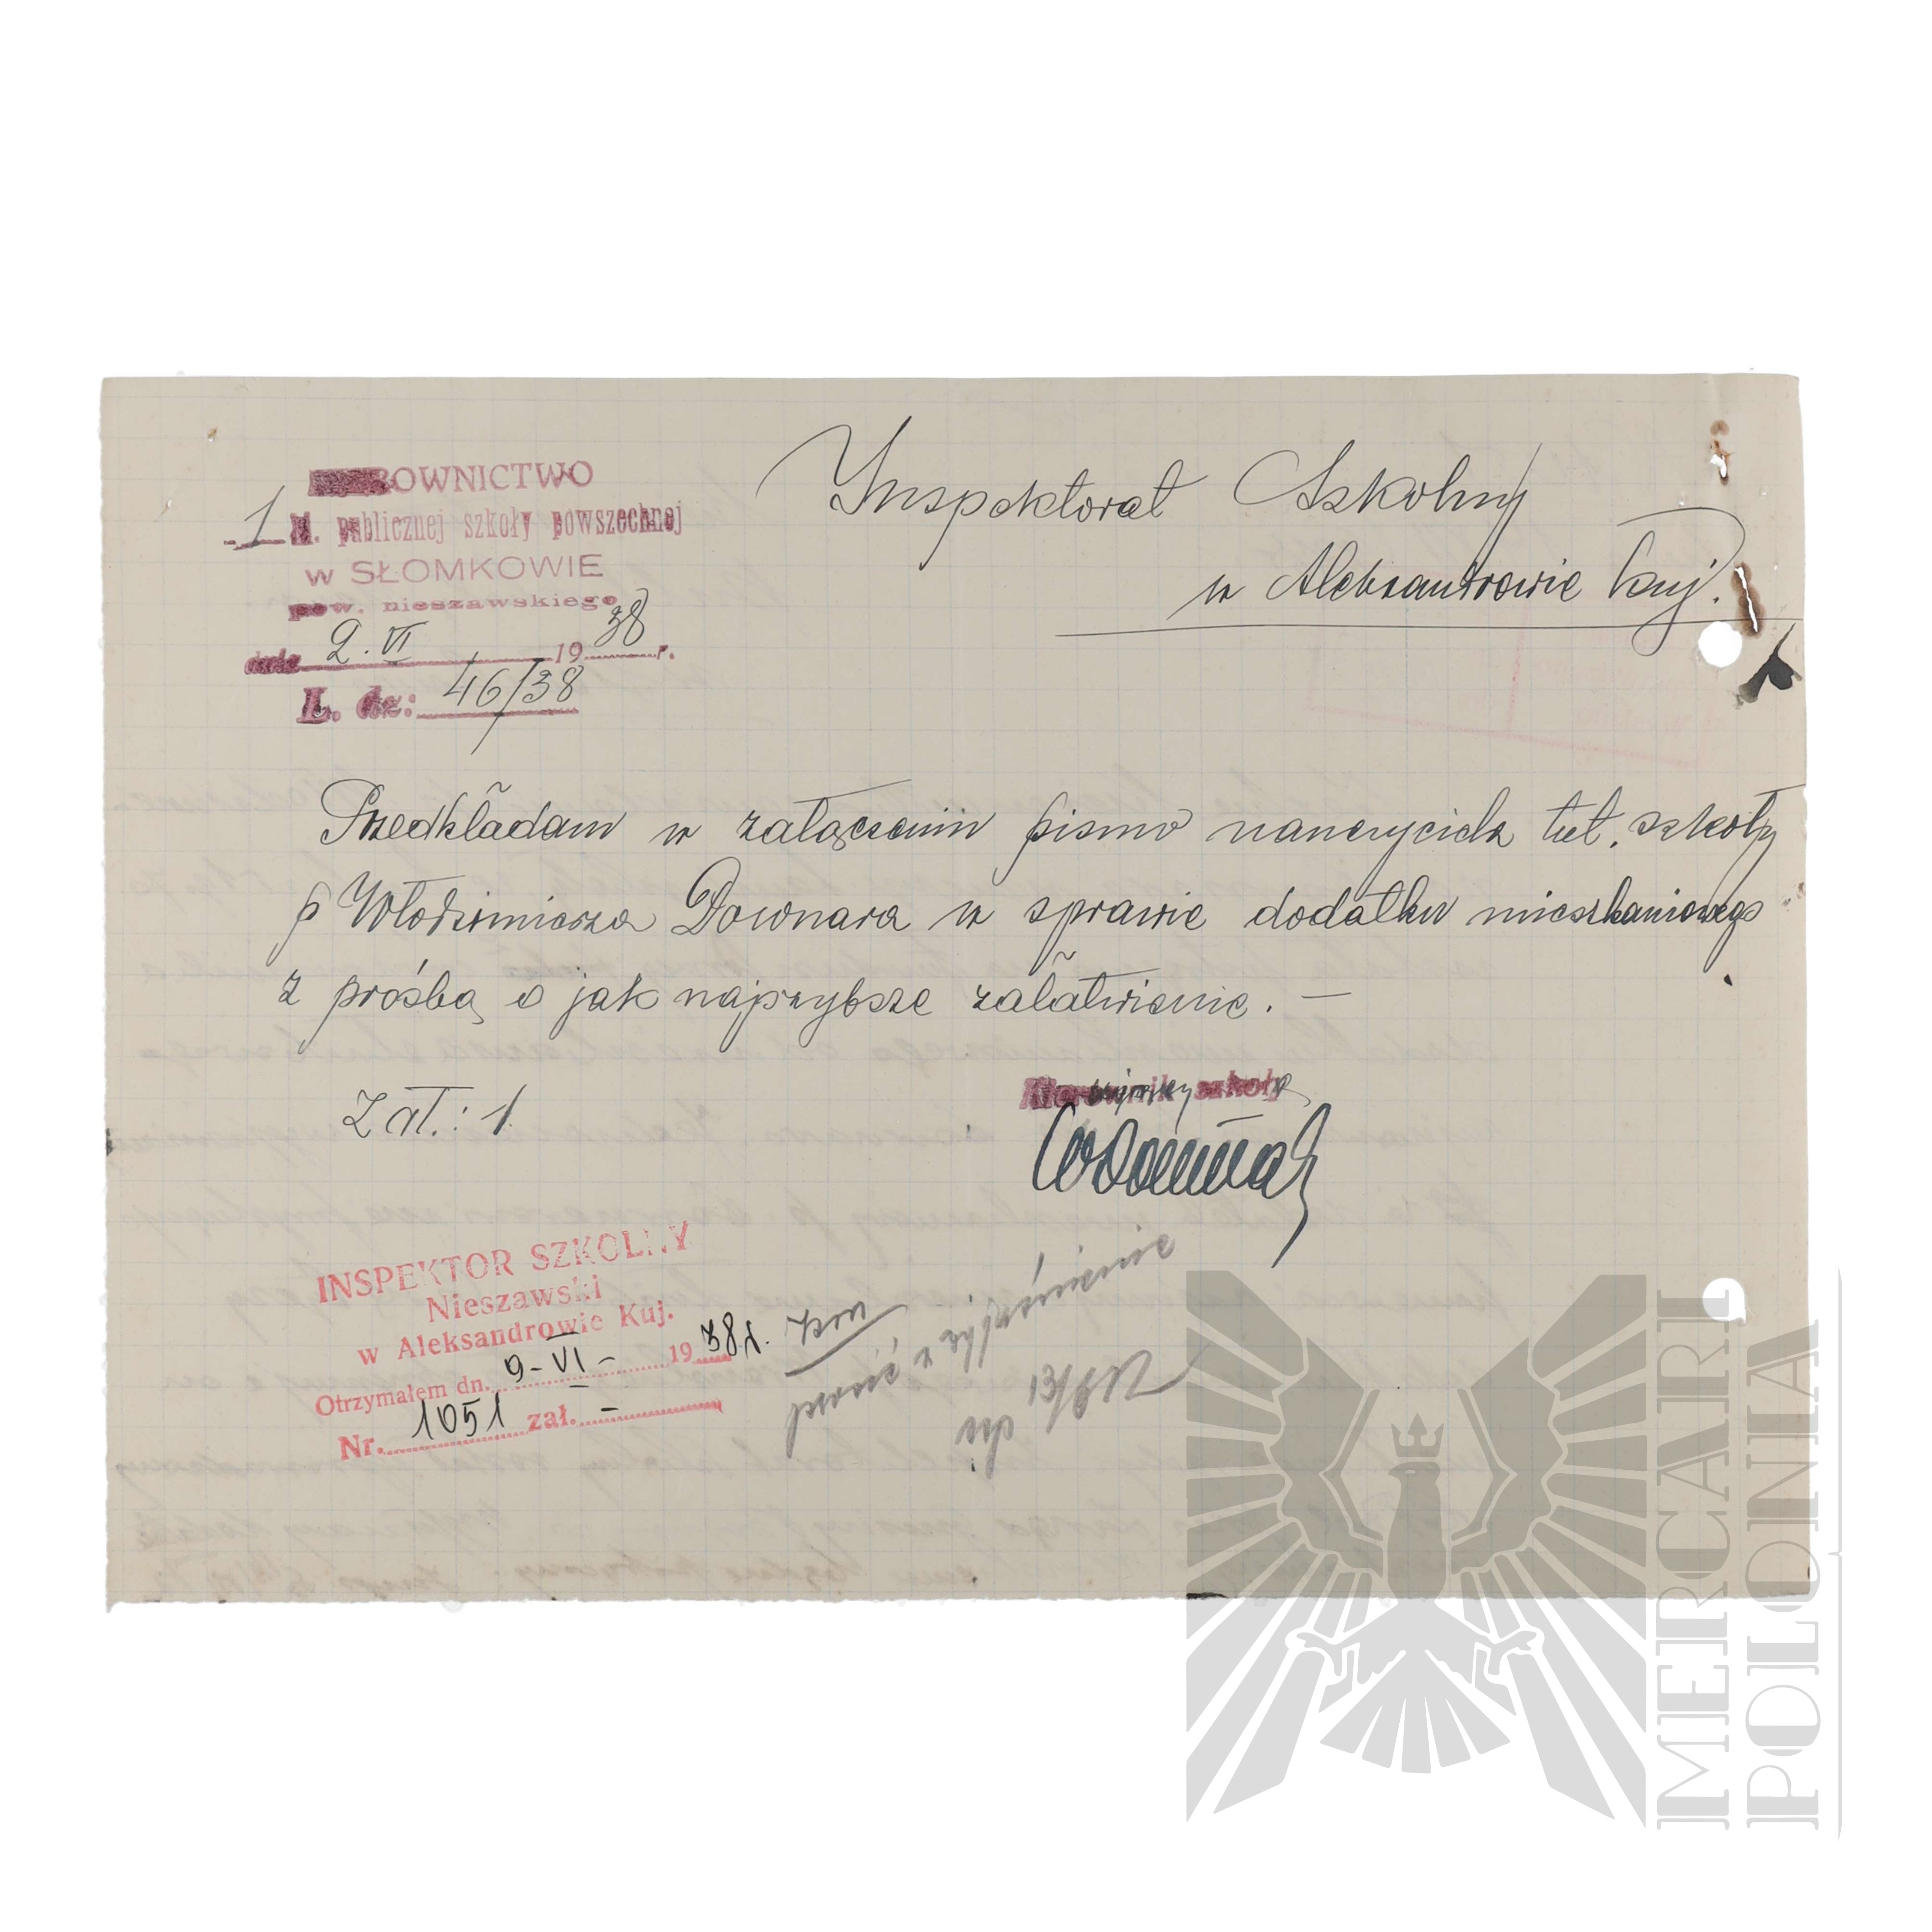 ROWNICTWO
1 kl. publicznej szkoły powszechnej
w SŁOMKOWIE
pow. nieszawskiego
dnia 2. VI 1938 r.
L. dz: 46/38
Inspektorat Szkolny
w Aleksandrowie Kuj.
Przedkładam w załączeniu pismo nauczyciela tut. szkoły
p Włodzimierza Downara w sprawie dodatku mieszkaniowego
z prośbą o jak najszybsze załatwienie. —
Zał.: 1
Kierownik szkoły
INSPEKTOR SZKOLNY
Nieszawski
w Aleksandrowie Kuj.
Otrzymałem dn. 9-VI- 1938 r.
Nr. 1051 zał. -
wyjaśnienie
13/6
MERCARI
POLONIA